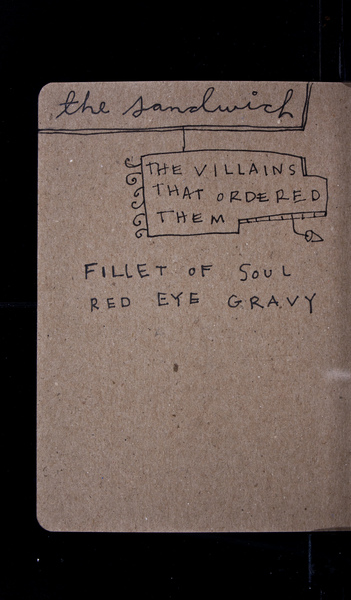 the sandwich
THE VILLAINS
THAT ORDERED
THEM
FILLET OF SOUL
RED EYE GRAVY